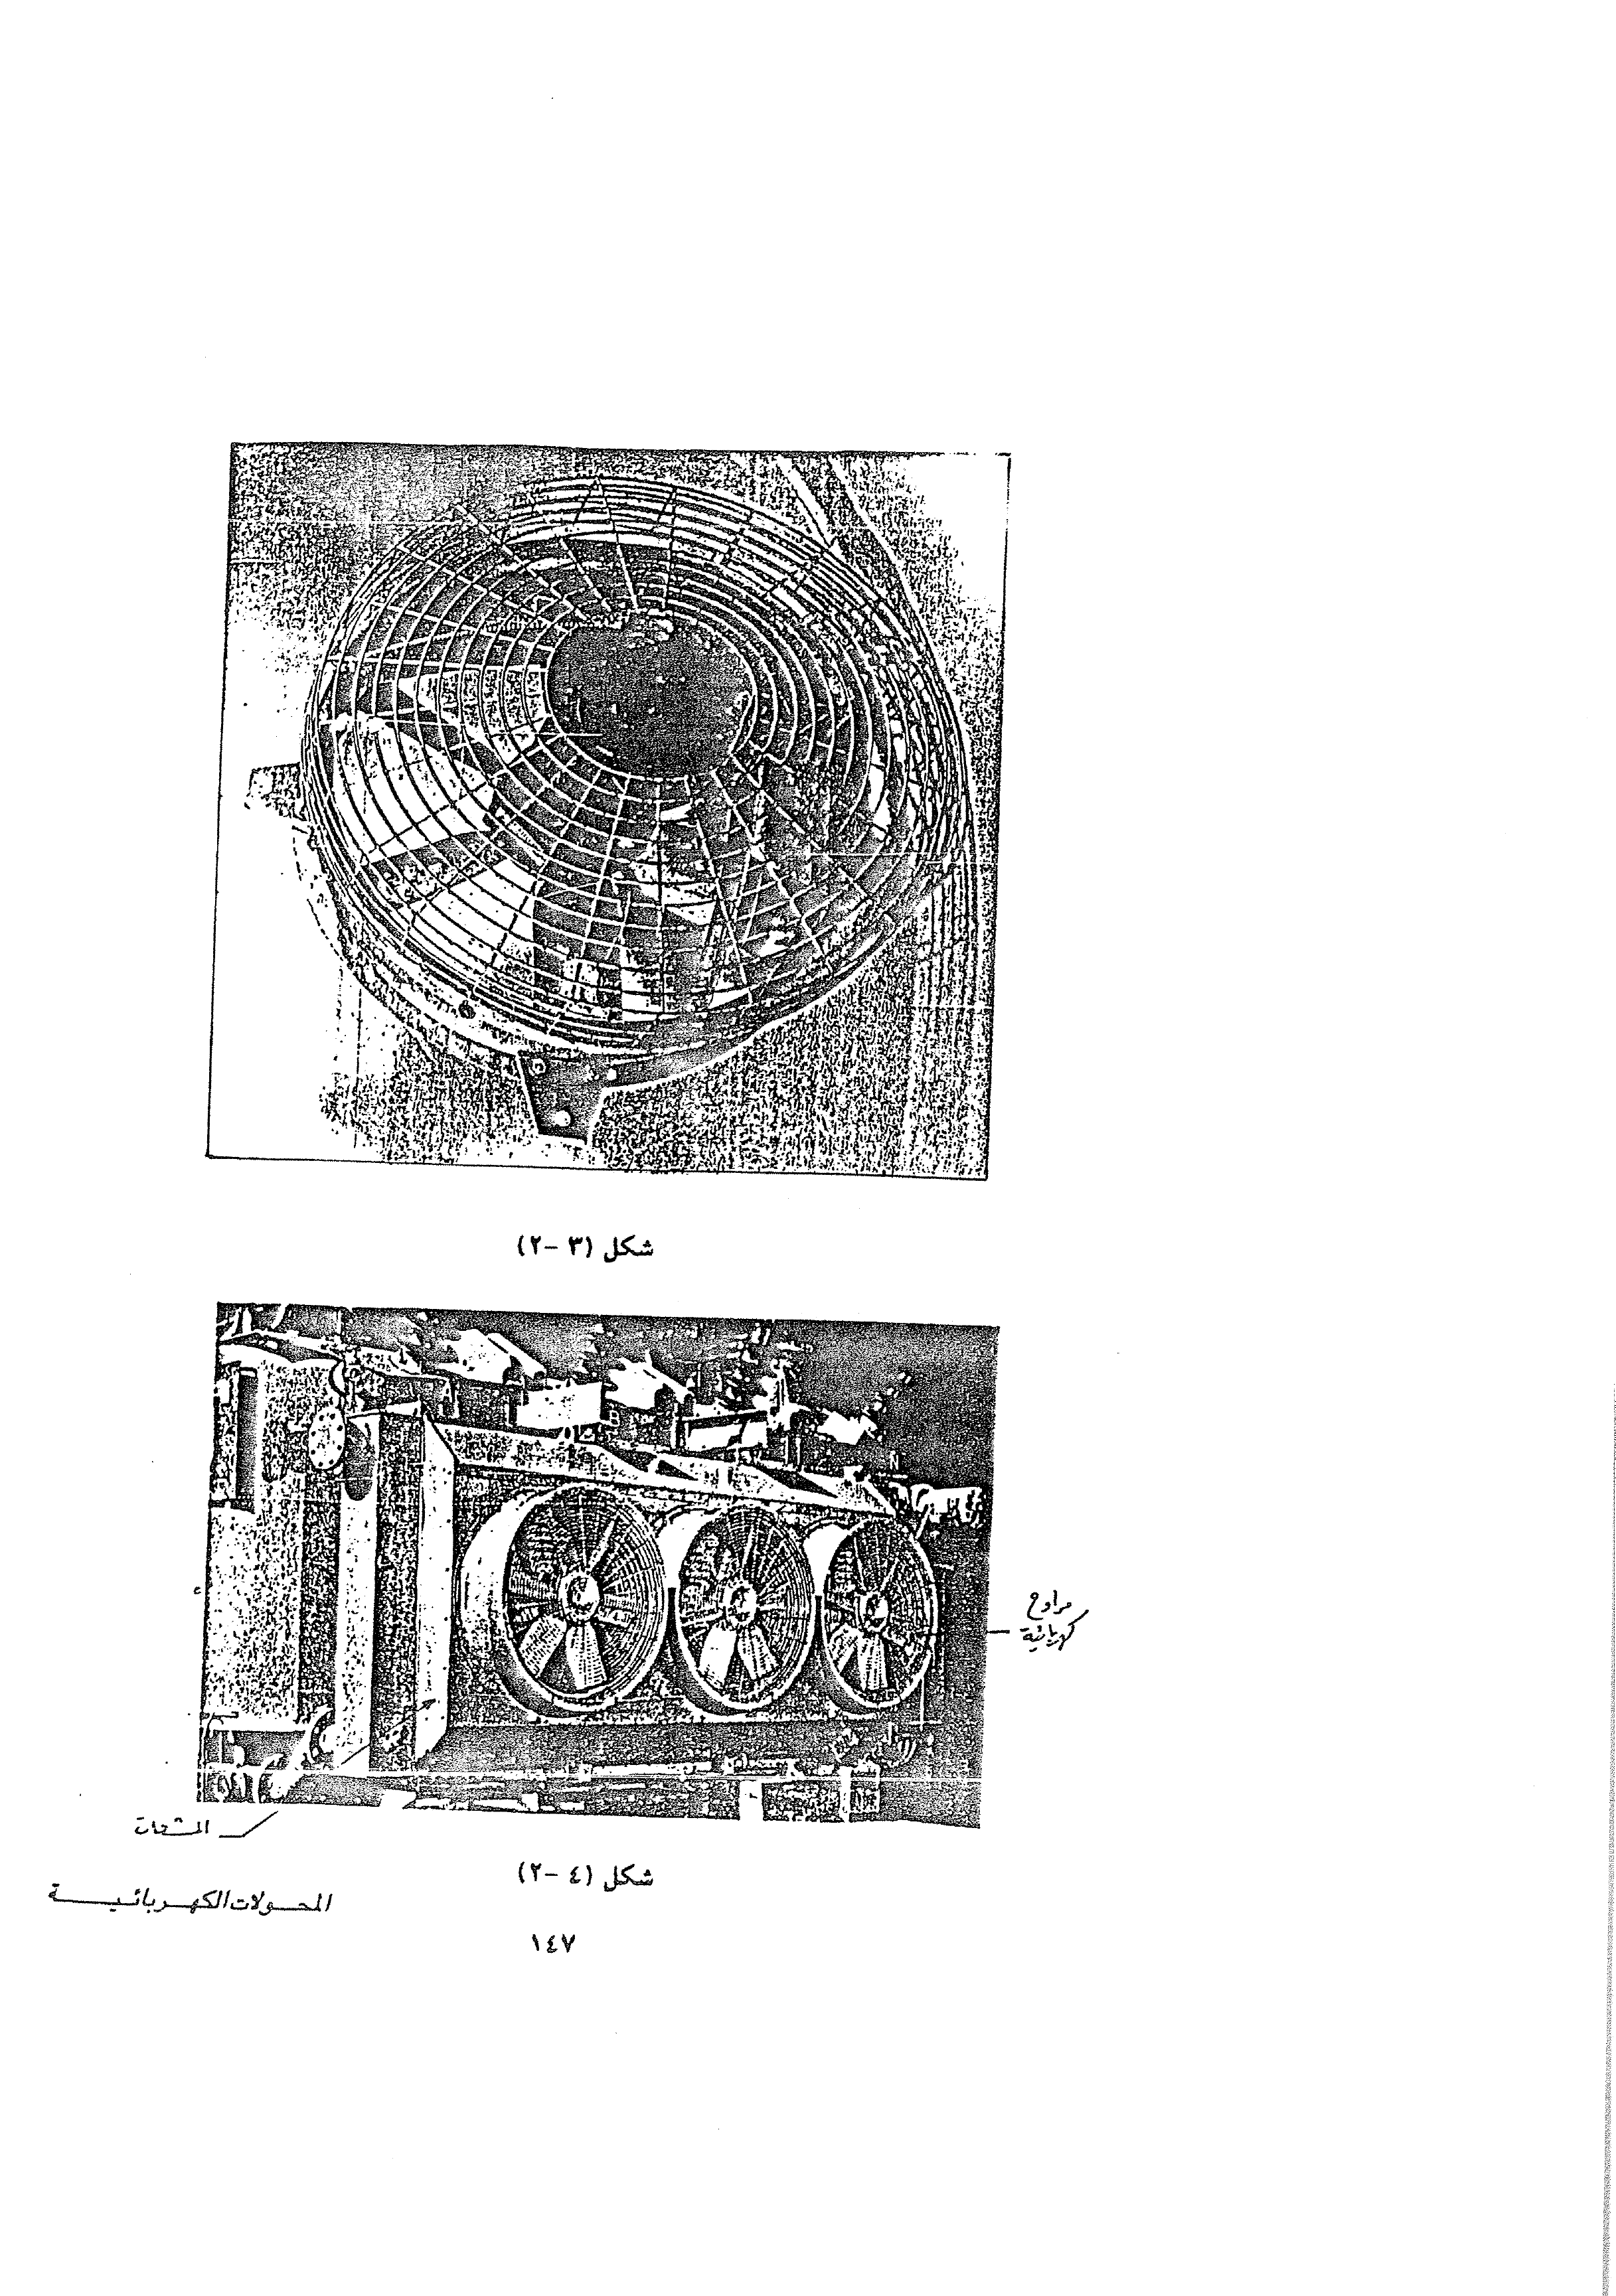 شكل (٣ -٢)
مراوح
كهربائية
المشعات
شكل (٤ -٢)
المحولات الكهربائية
١٤٧